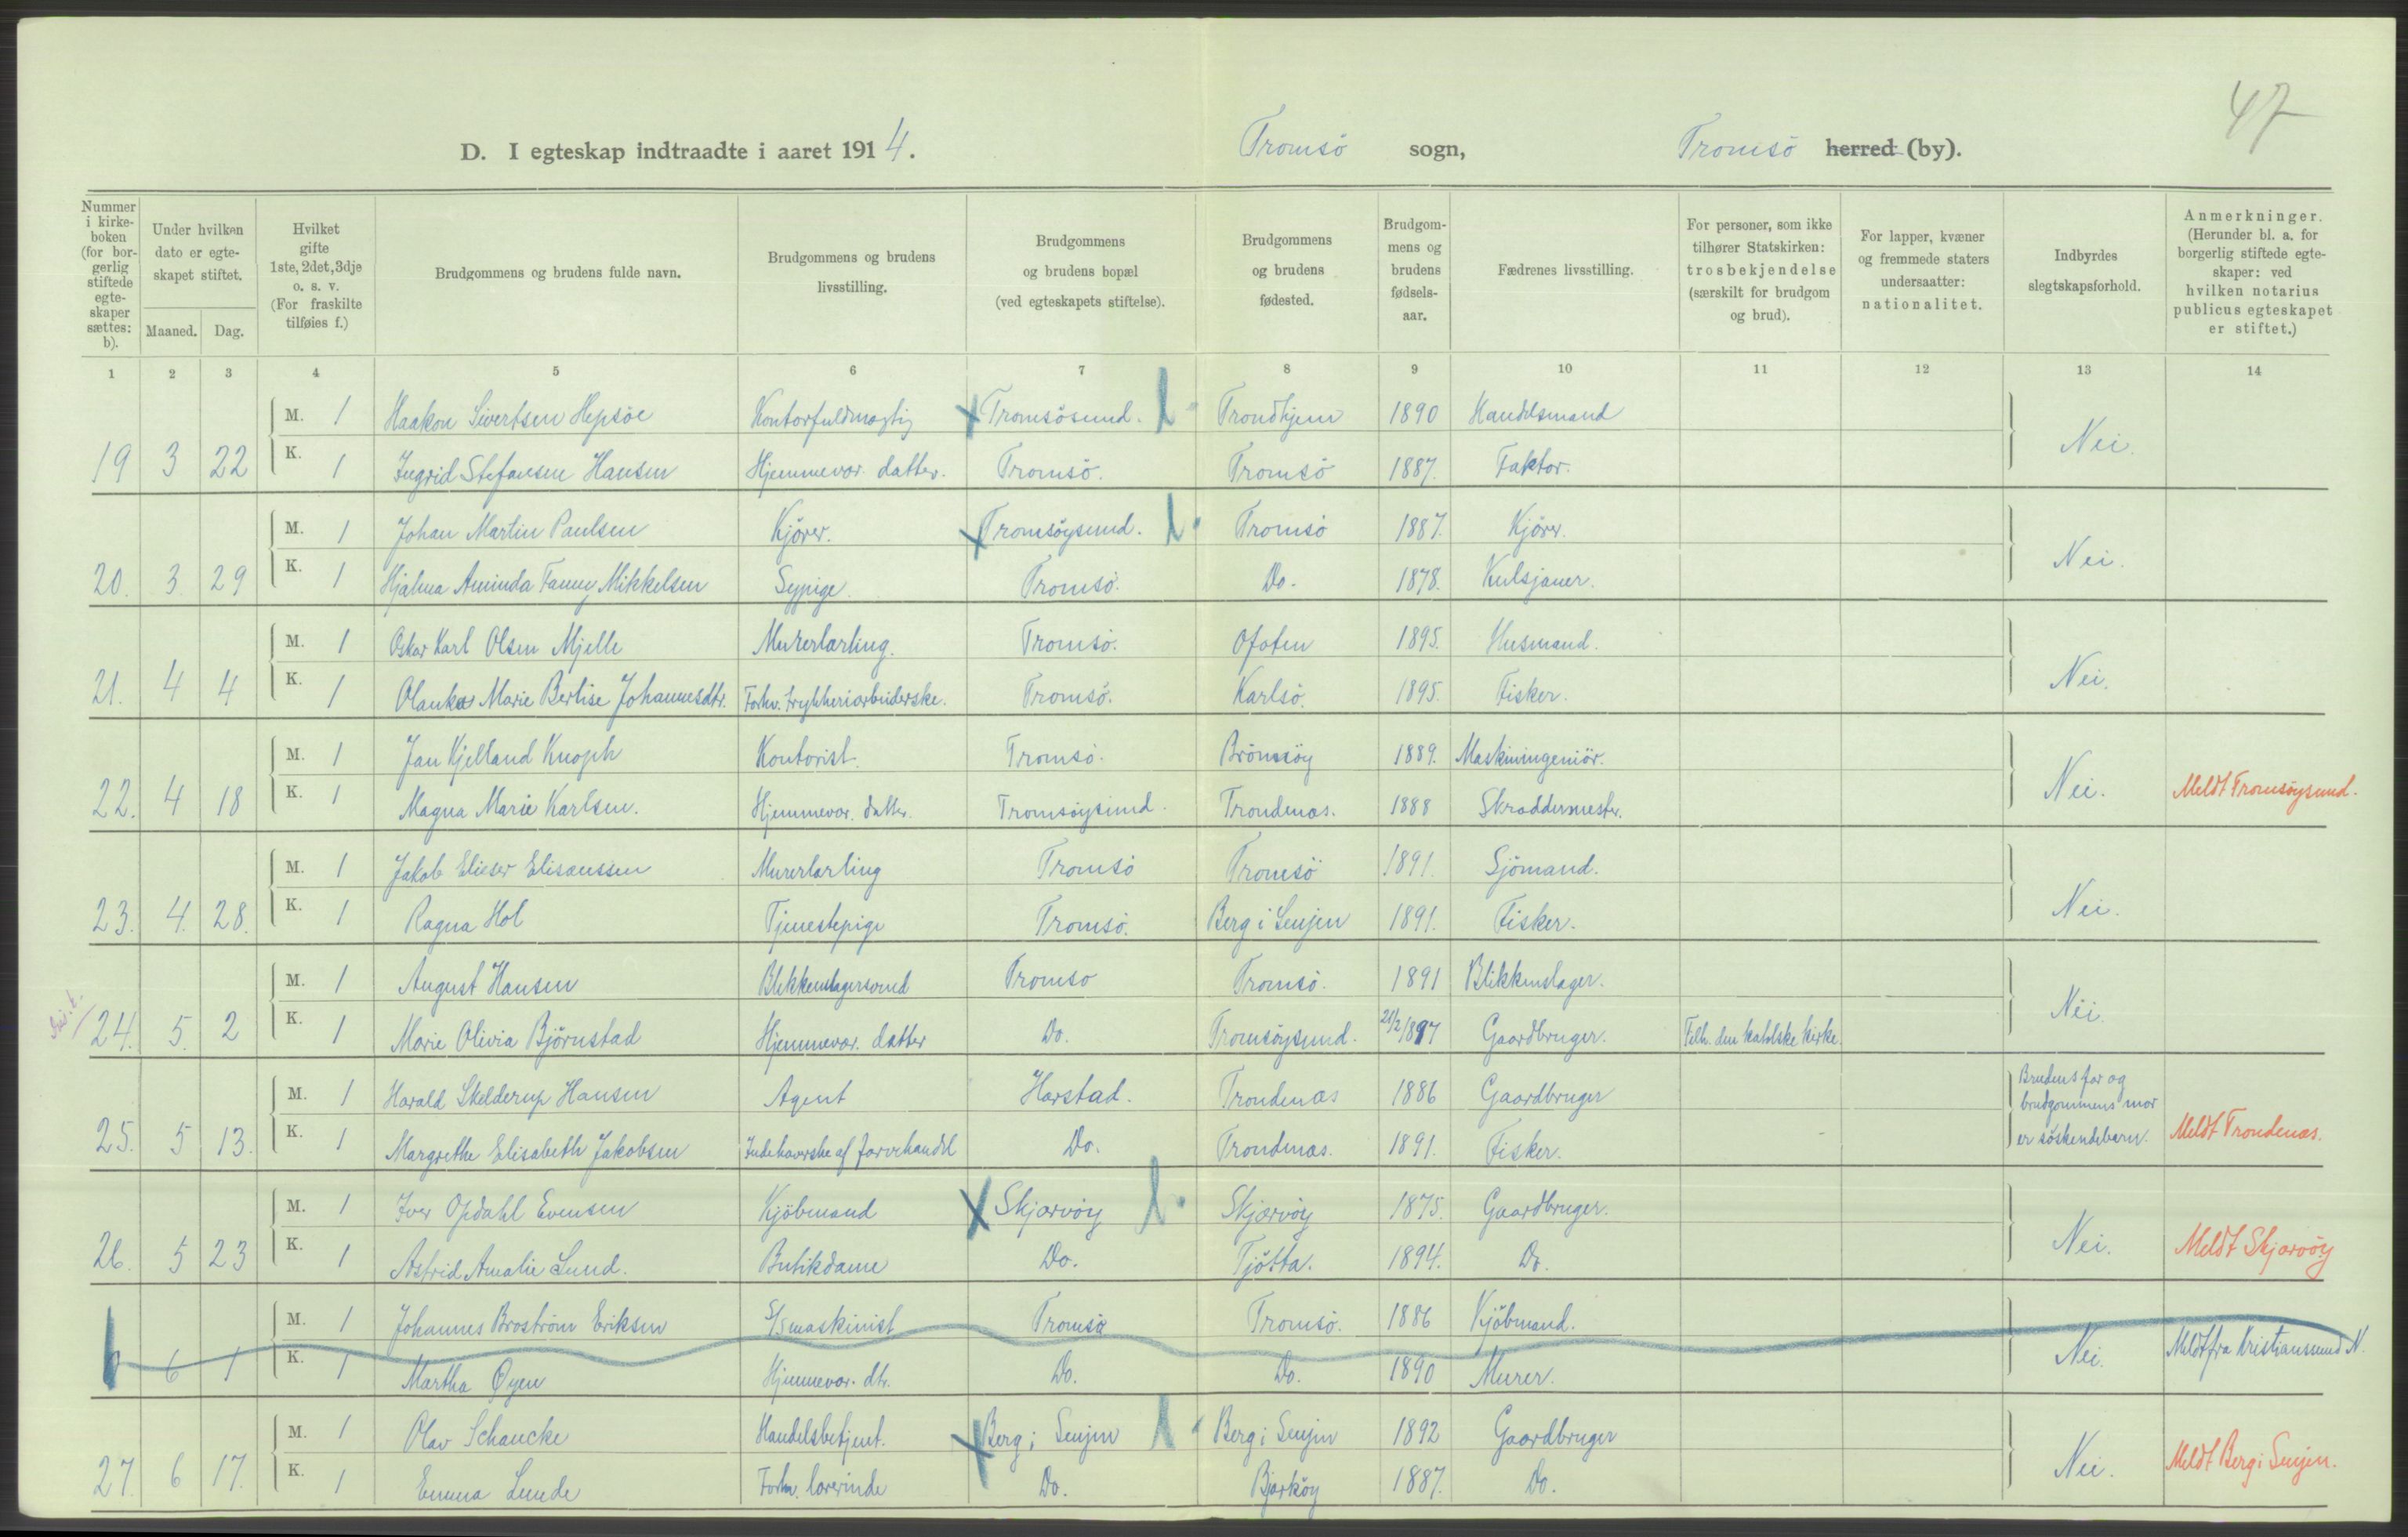 47
D. I egteskap indtraadte i aaret 1914. Tromsö sogn, Tromsö herred (by).
Nummer i kirkeboken (for borgerlig stiftede egteskaper sættes: b).
Under hvilken dato er egteskapet stiftet.
Maaned. Dag.
Hvilket gifte 1ste, 2det, 3dje o. s. v. (For fraskilte tilføies f.)
Brudgommens og brudens fulde navn.
Brudgommens og brudens livsstilling.
Brudgommens og brudens bopæl (ved egteskapets stiftelse).
Brudgommens og brudens fødested.
Brudgommens og brudens fødselsaar.
Fædrenes livsstilling.
For personer, som ikke tilhører Statskirken: trosbekjendelse (særskilt for brudgom og brud).
For lapper, kvæner og fremmede staters undersaatter: nationalitet.
Indbyrdes slegtskapsforhold.
Anmerkninger. (Herunder bl. a. for borgerlig stiftede egteskaper: ved hvilken notarius publicus egteskapet er stiftet.)
1 2 3 4 5 6 7 8 9 10 11 12 13 14
M. 1 Haakon Sivertsen Hepsöe Kontorfuldmægtig Tromsösund. Trondhjem 1890 Handelsmand
19 3 22 K. 1 Ingrid Stefansen Hansen Hjemmevær. datter. Tromsö. Tromsö 1887. Faktor. Nei.
M. 1 Johan Martin Paulsen Kjörer. Tromsöysund. Tromsö 1887. Kjörer.
20. 3 29 K. 1 Hjalma Aminda Fanny Mikkelsen Sypige. Tromsö. Do. 1878. Kulsjauer. Nei.
M. 1 Oskar Karl Olsen Mjelle Murerlærling. Tromsö. Ofoten 1895. Husmand.
21. 4 4 K. 1 Olanka Marie Bertise Johannesdtr. Forhv. trykkeriarbeiderske. Tromsö. Karlsö. 1895. Fisker. Nei.
M. 1 Jan Kjelland Knoph Kontorist. Tromsö. Brönnöy 1889. Maskiningeniör.
22. 4 18 K. 1 Magna Marie Karlsen. Hjemmevær. datter. Tromsöysund. Trondenæs. 1888 Skræddermester. Nei. Meldt Tromsöysund.
M. 1 Jakob Elieser Elisæussen Murerlærling Tromsö Tromsö 1891. Sjömand.
23. 4. 28. K. 1 Ragna Hol Tjenestepige Tromsö. Berg i Senjen 1891. Fisker. Nei.
M. 1 August Hansen Blikkenslagersvend Tromsö Tromsö. 1891 Blikkenslager.
24. 5. 2 K. 1 Marie Olivia Björnstad Hjemmevær. datter Do. Tromsöysund. 21/2 1897 Gaardbruger. Tilh. den katolske kirke. Nei
M. 1 Harald Skelderup Hansen Agent Harstad. Trondenæs 1886 Gaardbruger Brudens far og brudgommens mor
25. 5 13. K. 1 Margrethe Elisabeth Jakobsen Indehaverske af farvehandel Do. Trondenæs. 1891. Fisker. er söskendebarn. Meldt Trondenæs.
M. 1 Iver Opdahl Evensen Kjöbmand Skjærvöy Skjærvöy 1875. Gaardbruger.
26. 5 23 K. 1 Astrid Amalie Lund. Butikdame Do. Tjötta. 1894. Do. Nei. Meldt Skjærvöy
M. 1 Johannes Broström Eriksen S/S maskinist Tromsö Tromsö. 1886 Kjöbmand.
b 6 1 K. 1 Martha Øyen Hjemmevær. dtr. Do. Do. 1890 Murer. Nei. Meldt fra Kristiansund N.
M. 1 Olav Schancke Handelsbetjent. Berg i Senjen Berg i Senjen 1892 Gaardbruger
27. 6 17. K. 1 Emma Lunde Forhv. lærerinde Do. Bjarköy 1887. Do. Nei. Meldt Berg i Senjen.